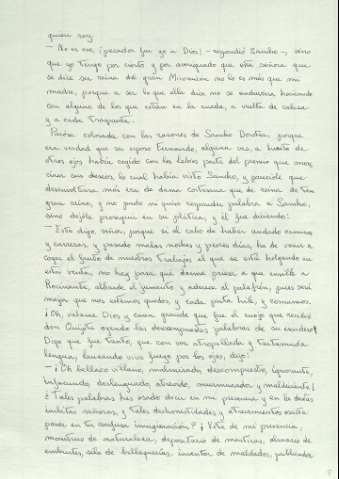 quien soy.
— No es eso, ¡pecador fui yo a Dios! — respondió Sancho —, sino
que yo tengo por cierto y por averiguado que esta señora que
se dice ser reina del gran Micomicón no lo es más que mi
madre, porque a ser lo que ella dice no se anduviera hocicando
con alguno de los que están en la rueda, a vuelta de cabeza
y a cada traspuesta.
Paróse colorada con las razones de Sancho Dorotea, porque
era verdad que su esposo Fernando, alguna vez, a hurto de
otros ojos había cogido con los labios parte del premio que mere
cían sus deseos, lo cual había visto Sancho, y parecióle que
desenvoltura más era de dama cortesana que de reina de tan
gran reino, y no pudo ni quiso responder palabra a Sancho,
sino dejóle proseguir en su plática, y él fue diciendo:
— Esto digo, señor, porque si al cabo de haber andado caminos
y carreras, y pasado malas noches y peores días, ha de venir a
coger el fruto de nuestros trabajos el que se está holgando en
esta venta, no hay para qué darme prisa a que ensille a
Rocinante, albarde el jumento y aderece el palafrén, pues será
mejor que nos estemos quedos, y cada puta hile, y comamos.
¡Oh, válame Dios y cuán grande que fue el enojo que recibió
don Quijote oyendo las descompuestas palabras de su escudero!
Digo que fue tanto, que con voz atropellada y tartamuda
lengua, lanzando vivo fuego por los ojos, dijo:
— ¡Oh bellaco villano, malmirado, descompuesto, ignorante,
infacundo, deslenguado, atrevido, murmurador y maldiciente!
¿Tales palabras has osado decir en mi presencia y en la destas
ínclitas señoras, y tales deshonestidades y atrevimientos osaste
poner en tu confusa imaginación? ¡Vete de mi presencia,
monstruo de naturaleza, depositario de mentiras, almario de
embustes, silo de bellaquerías, inventor de maldades, publicador